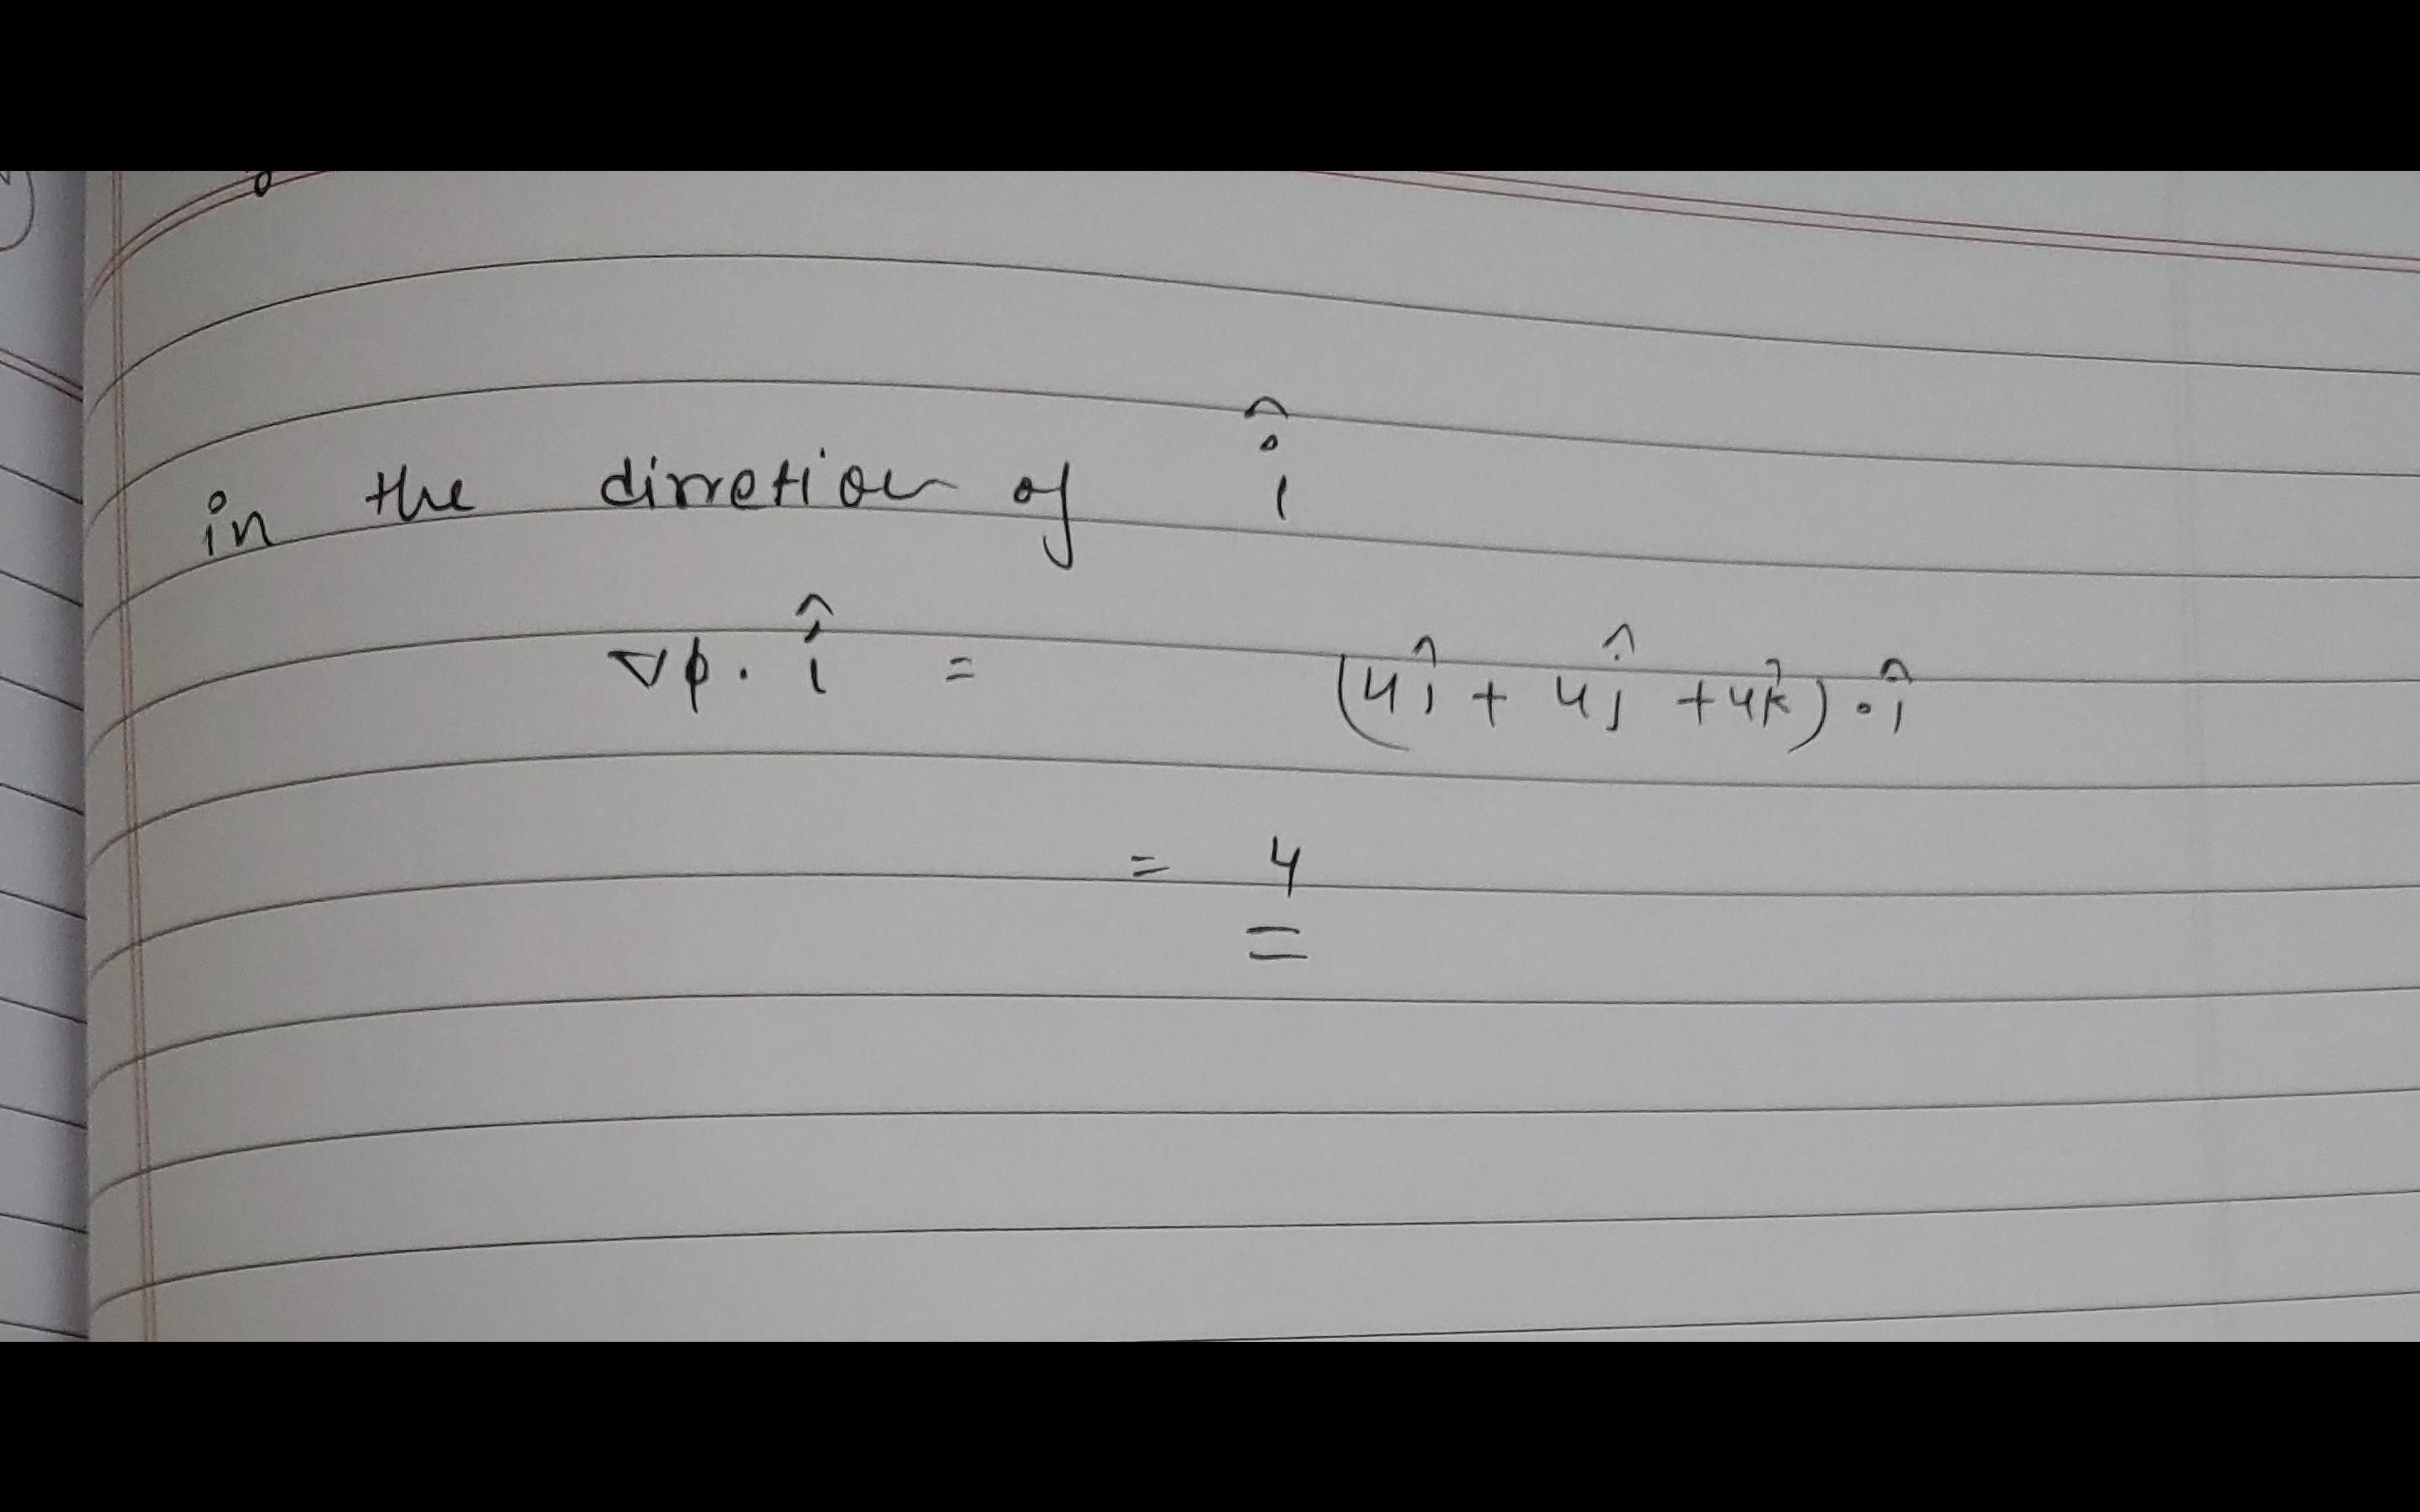 in the dirretion of î
∇φ. î = (4î + 4ĵ + 4k̂) . î
= 4